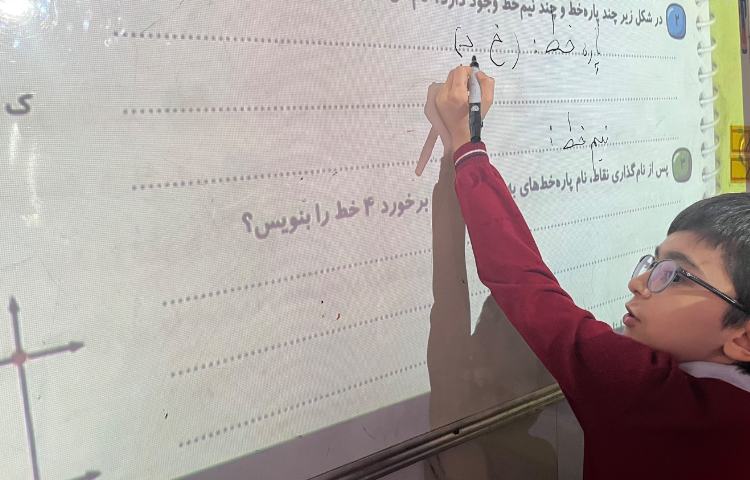 ۲ در شکل زیر چند پاره‌خط و چند نیم‌خط وجود دارد؟
پاره خط : (خ د)
نیم خط :
۳ پس از نام‌گذاری نقاط، نام پاره‌خط‌های به برخورد ۴ خط را بنویس؟
ک